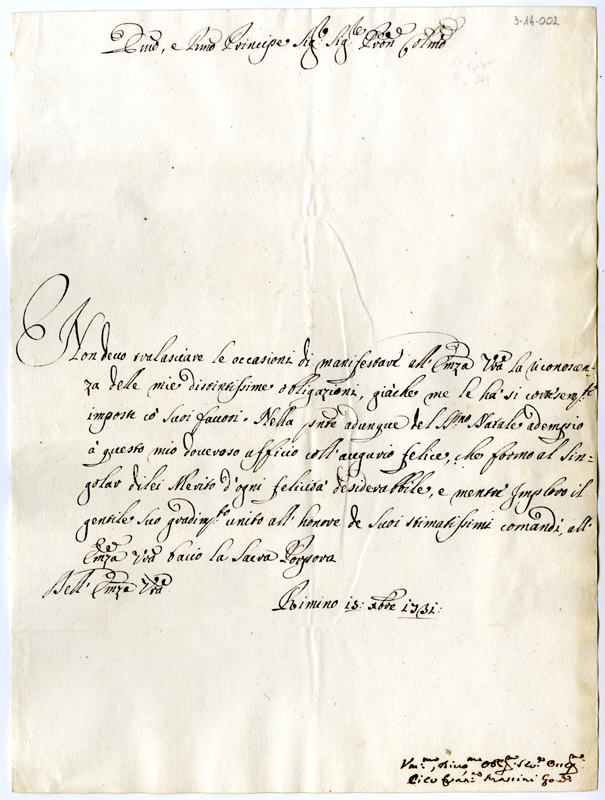 3-14-002
Emo, e Rmo Principe Sigr Sigr Pron Colmo
Non devo tralasciare le occasioni di manifestare all' Emza Vra la riconoscen-
za delle mie distintissime obligazioni, giàche me le hà si cortesemte
imposte cò suoi favori. Nella pnte adunque del SSmo Natale adempio
à questo mio doveroso afficio coll' augurio felice, che formo al Sin-
golar di lei Merito d'ogni felicità desiderabbile, e mentre Imploro il
gentile suo gradimto unito all' honore de suoi stimatissimi comandi, all'
Emza Vra bacio la Sacra Porpora
Dell' Emza Vra
Rimino 15: Xbre 1731:
Vmmo, Divmo Obb Servo
Massini